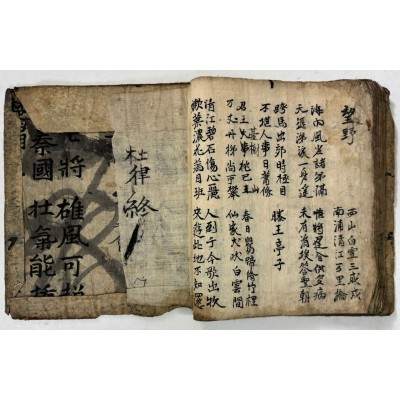 望野
西山白雪三城戍
南浦清江万里橋
海內風尘諸弟隔 惟將遲暮供多病
天涯涕淚一身遙 未有涓埃答聖朝
跨馬出郊時極目
不堪人事日蕭條
滕王亭子
君王臺榭枕巴山 春日鶯啼脩竹裡
万丈丹梯尚可攀 仙家犬吠白雲間
清江碧石傷心麗 人到于今歌出牧
嫩蕊濃花滿目班 來遊此地不知還
杜律終
將雄風可
秦國壯氣能